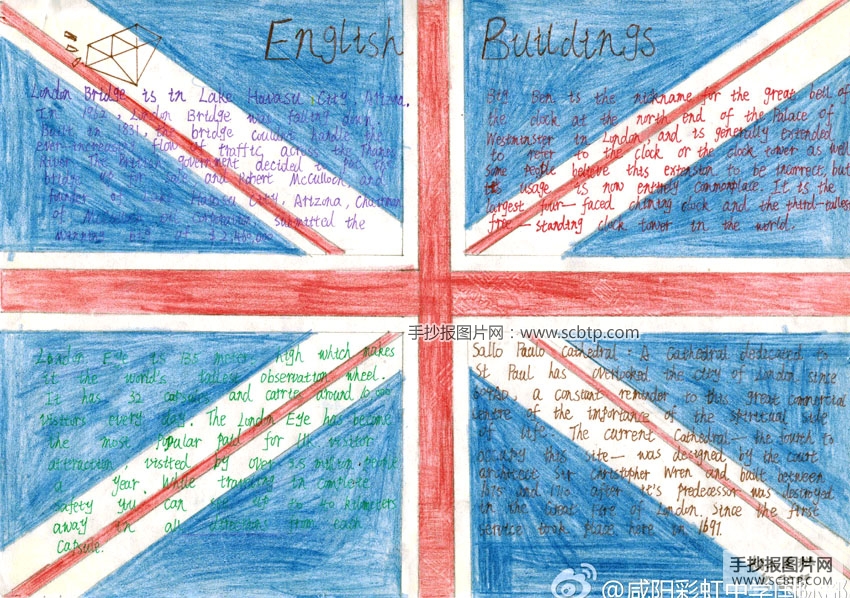 English Buildings
London Bridge is in Lake Havasu City, Arizona.
In 1962, London Bridge was falling down.
Built in 1831, the bridge couldn't handle the
ever-increased flow of traffic across the Thames
River. The British government decided to
bridge up for sale, and Robert McCulloch, and
founder of Lake Havasu City, Arizona, Chairman
of submitted the
winning bid of
Big Ben is the nickname for the great bell of
the clock at the north end of the Palace of
Westminster in London, and is generally extended
to refer to the clock or the clock tower as well
some people believe this extension to be incorrect, but
its usage is now entirely commonplace. It is the
largest four-faced chiming clock and the third-tallest
free-standing clock tower in the world.
手抄报图片网：www.scbtp.com
London Eye is 135 meters high which makes
it the world's tallest observation wheel.
It has 32 capsules and carries around
visitors every day. The London Eye has become
the most popular paid for UK visitor
attraction, visited by over 3.5 million people
a year. While traveling in complete
safety you can see up to 40 kilometers
away in all directions from each
capsule.
Sallo Paulo Cathedral: A Cathedral dedicated to
St Paul has overlooked the city of London since
604AD, a constant reminder to this great commercial
centre of the importance of the spiritual side
of life. The current Cathedral—the fourth to
occupy this site—was designed by the court
architect Sir Christopher Wren and built between
1675 and 1710 after it's predecessor was destroyed
in the Great Fire of London. Since the first
service took place here in 1697.
手抄报图片网
WWW.SCBTP.COM
@咸阳彩虹中学